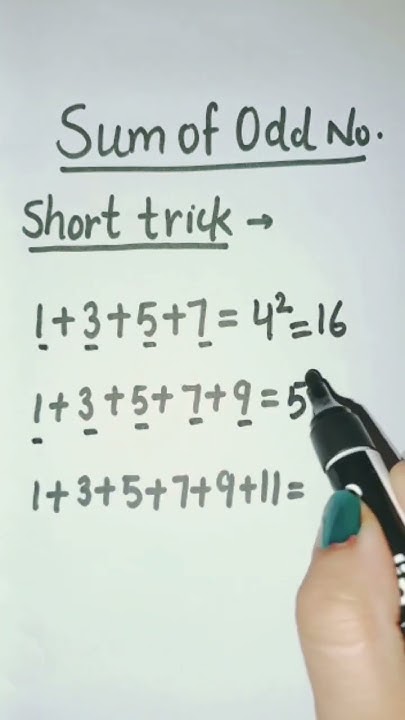 Sum of Odd No.
Short trick →
1+3+5+7=4²=16
1+3+5+7+9=5
1+3+5+7+9+11=